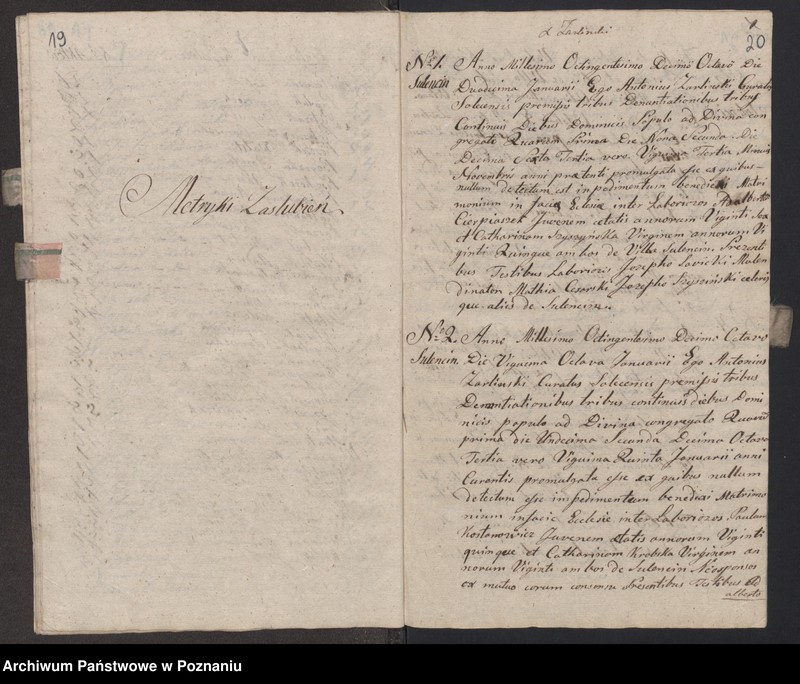 19
Metryki Zaslubien
20
Zarlinski
No 1. Anno Millesimo Octingentesimo Decimo Octavo Die
Sulencin Duodecima Januarii Ego Antonius Zarlinski Curatus
Solecensis premissis tribus Denuntiationibus tribus
Continuis Diebus Dominicis Populo ad Divina con
gregato Quarum Prima Die Nona Secunda Die
Decima Sexta Tertia vero Viguima Tertia Mensis
Novembris anni praetenti promulgata esse ex quibus
nullum detectum est impedimentum benedixi Matri
monium in facie Eclesie inter Laboriozos Adalbertu
Cierpiaszek Juvenem etatis annorum Viginti Sex
et Catharinam Szyszyńska Virginem annorum Vi
ginti Quinque ambos de Villa Sulencin. Prezenti
bus Testibus Laboriozis Jozepho Savicki Matea
Mathia Cesarski Jozepho Szyszinski ceteris
que aliis de Sulencin.
No 2. Anno Millesimo Octingentesimo Decimo Octavo
Sulencin. Die Viguima Octava Januarii Ego Antonius
Zarlinski Curatus Solecensis premissis tribus
Denuntiationibus tribus continuis diebus Domi
nicis populo ad Divina congregato Quarum
prima die Undecima Secunda Decima Octava
Tertia vero Viguima Quinta Januarii anni
Curentis promulgata esse ex quibus nullum
detectom esse impedimentum benedixi Matrimo
nium in facie Ecclesie inter Laboriozos Paulum
Kostanowicz Juvenem etatis annorum Viginti
quinque et Catharinam Krobska Virginem an
norum Viginti ambos de Sulencin Neosponsos
ex mutuo eorum consensu Presentibus Testibus Ad
alberto
Archiwum Państwowe w Poznaniu